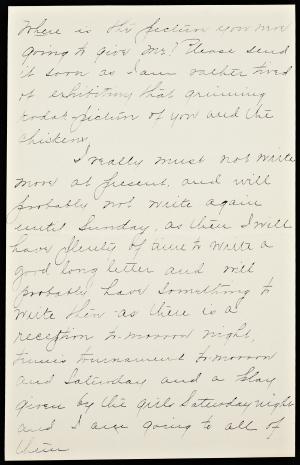 Where is the picture you were
going to give me? Please send
it soon as I am rather tired
of exhibiting that grinning
kodak picture of you and the
chickens.
I really must not write
more at present, and will
probably not write again
until Sunday, as then I will
have plenty of time to write a
good long letter and will
probably have something to
write then - as there is a
reception to-morrow night,
tennis tournament to-morrow
and Saturday and a play
given by the girls Saturday night
and I am going to all of
them